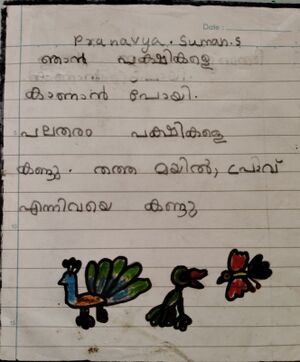 Date :
Pranavya. Suman.s
ഞാൻ പക്ഷികളെ
കാണാൻ പോയി.
പലതരം പക്ഷികളെ
കണ്ടു. തത്ത മയിൽ, പ്രാവ്
എന്നിവയെ കണ്ടു